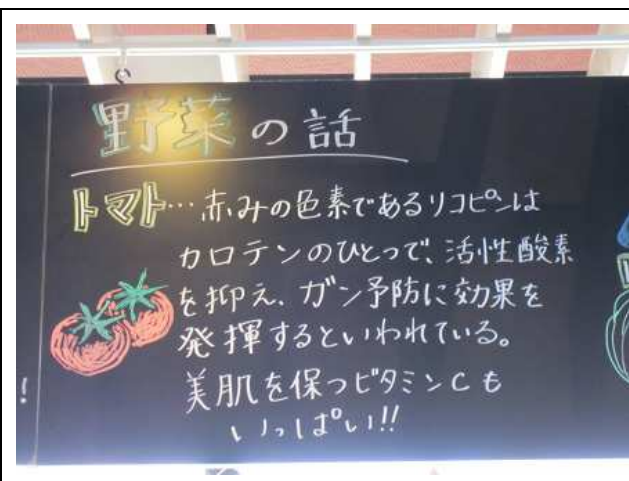 野菜の話
トマト…赤みの色素であるリコピンは
カロテンのひとつで、活性酸素
を抑え、ガン予防に効果を
発揮するといわれている。
美肌を保つビタミンCも
いっぱい!!